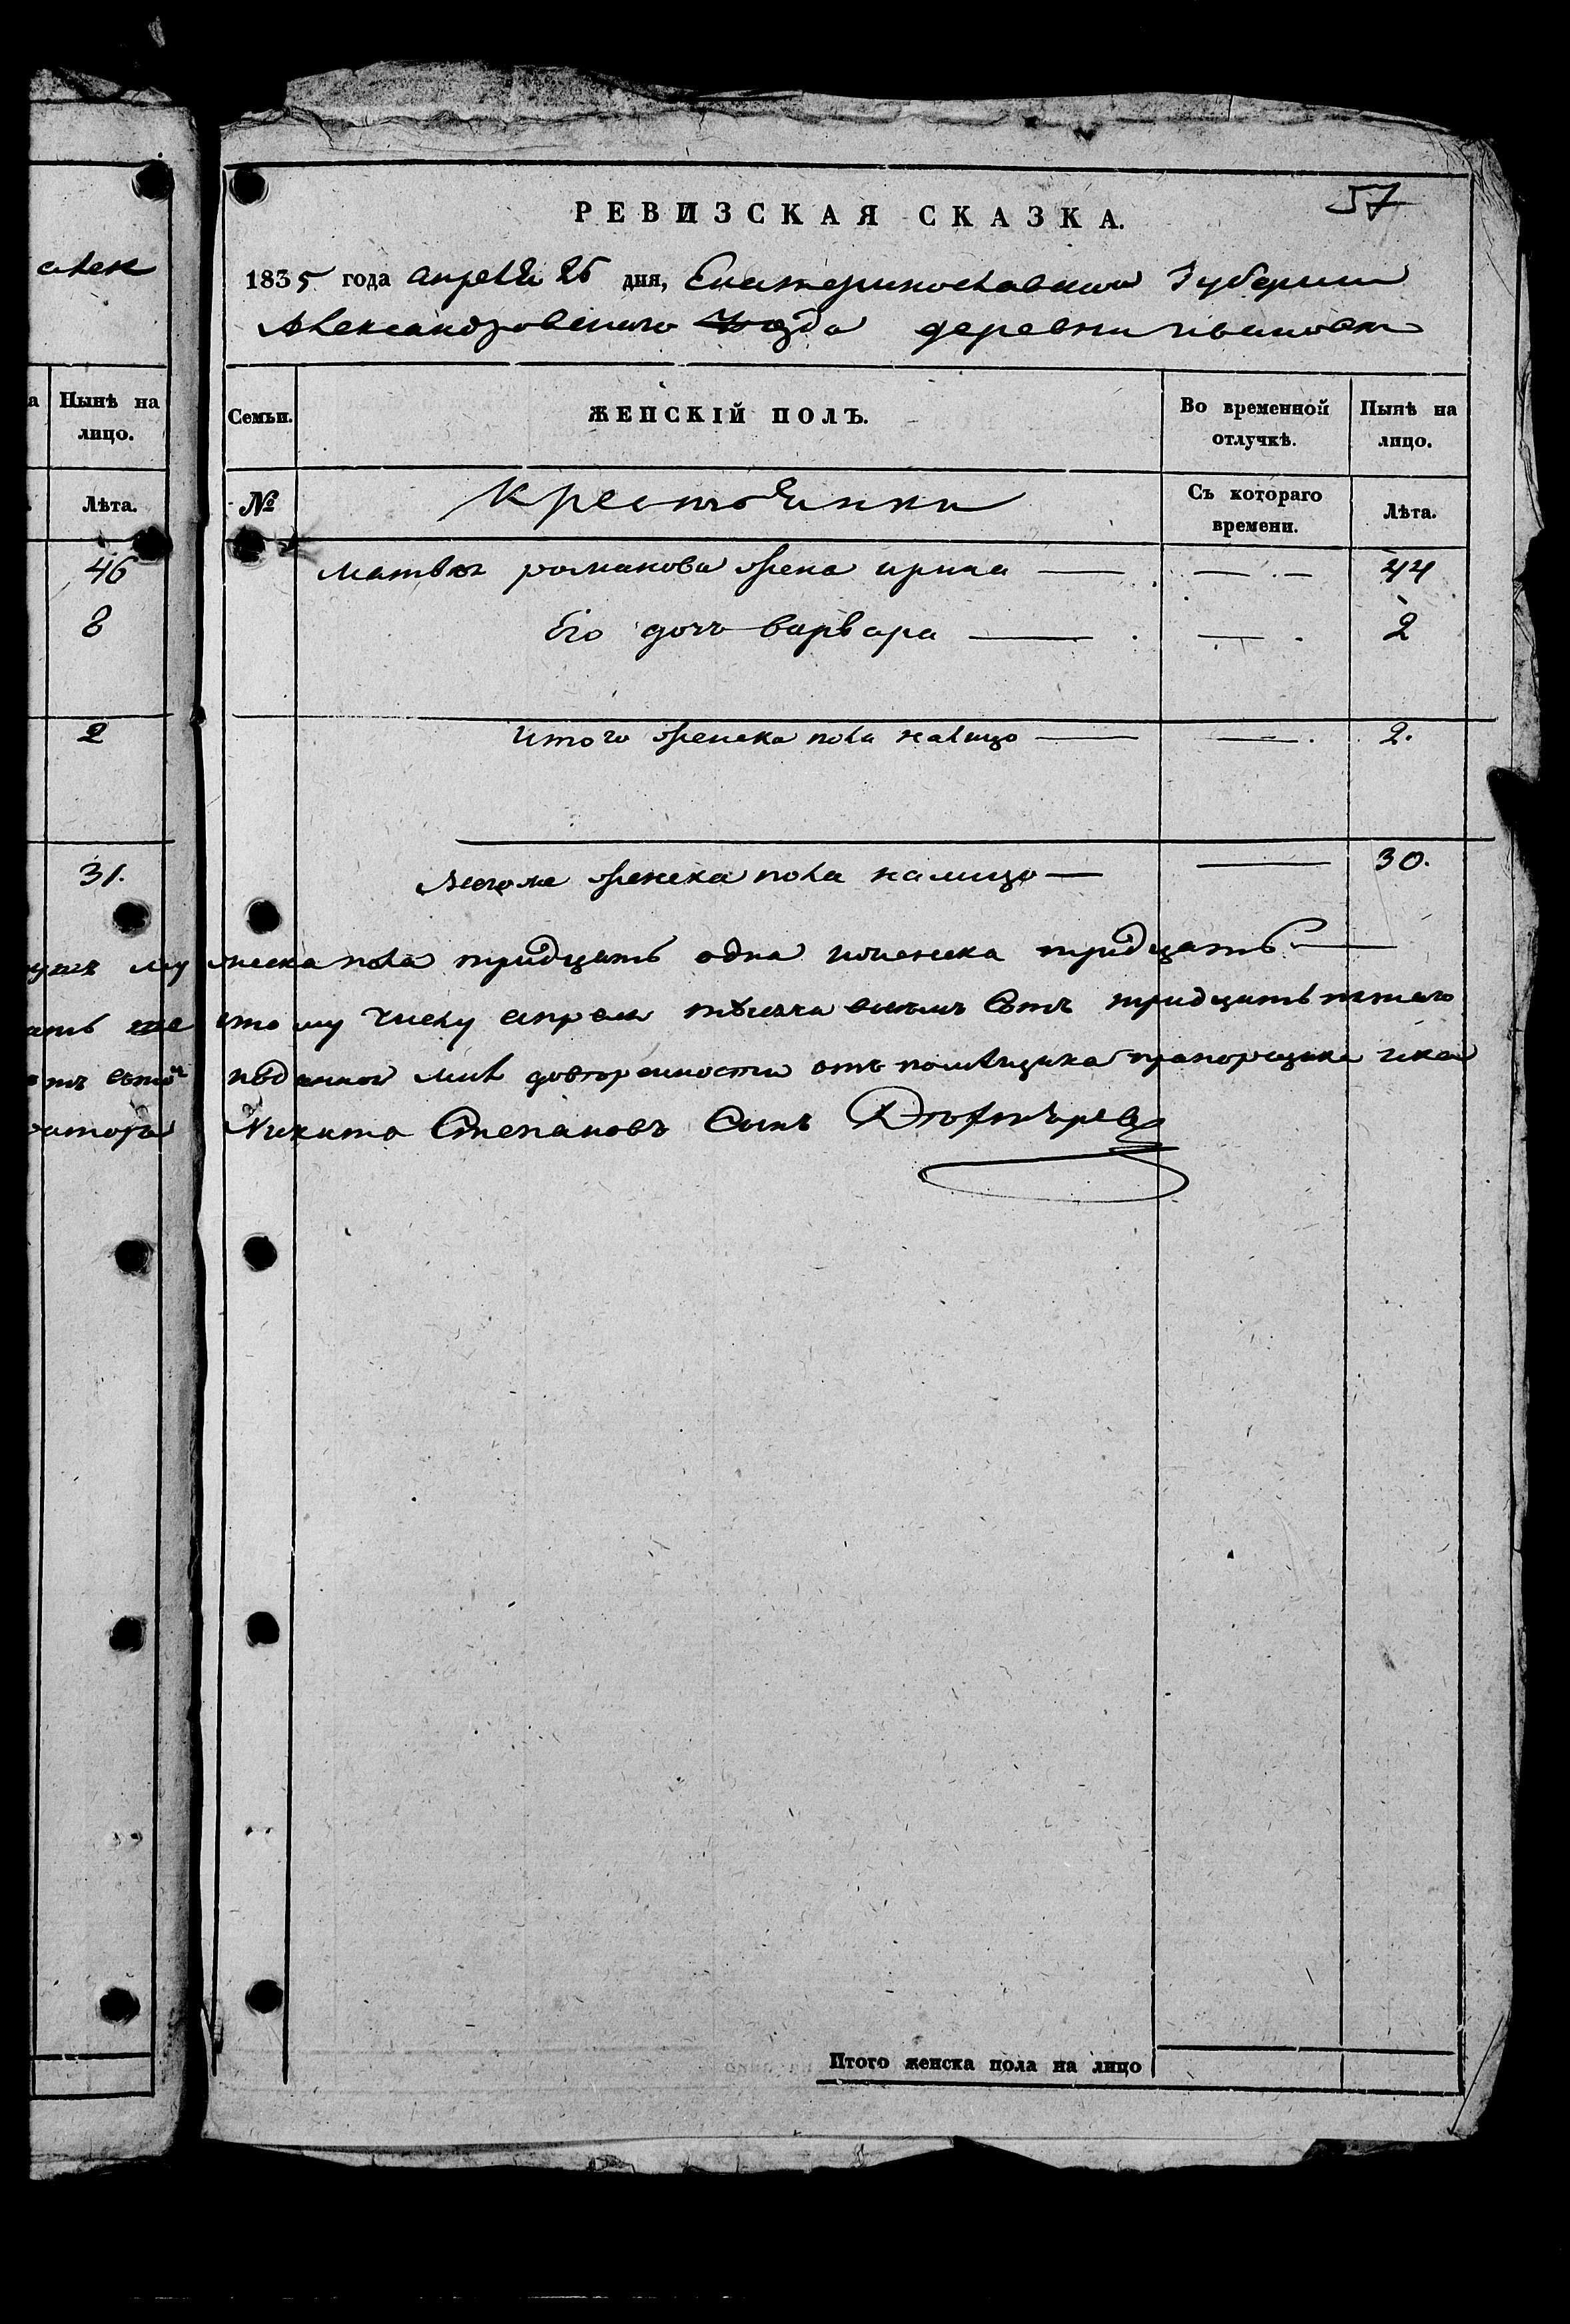 57
РЕВИЗСКАЯ СКАЗКА.
1835 года апреля 26 дня, Екатеринославской Губернии
Александровского уезда деревни
алек
Нынѣ на
лицо.
Лѣта.
46
8
2
31.
Семьи.
ЖЕНСКІЙ ПОЛЪ.
Во временной
отлучкѣ.
Нынѣ на
лицо.
№
Крестьянки
Съ котораго
времени.
Лѣта.
Матвея романова жена ирина — — 44
Его дочь варвара — — 2
Итого женска пола налицо — — 2.
женска пола налицо — — 30.
душъ му жеска пола тридцать одна женска тридцать
стому числу апреля тысяча восемъ сотъ тридцать пятаго
данной мнѣ доверенности отъ помѣщика прапорщика
Никита Степановъ Сынъ
Итого женска пола на лицо